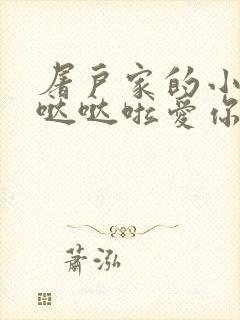 屠户家的小
哒哒啦爱你
萧泓